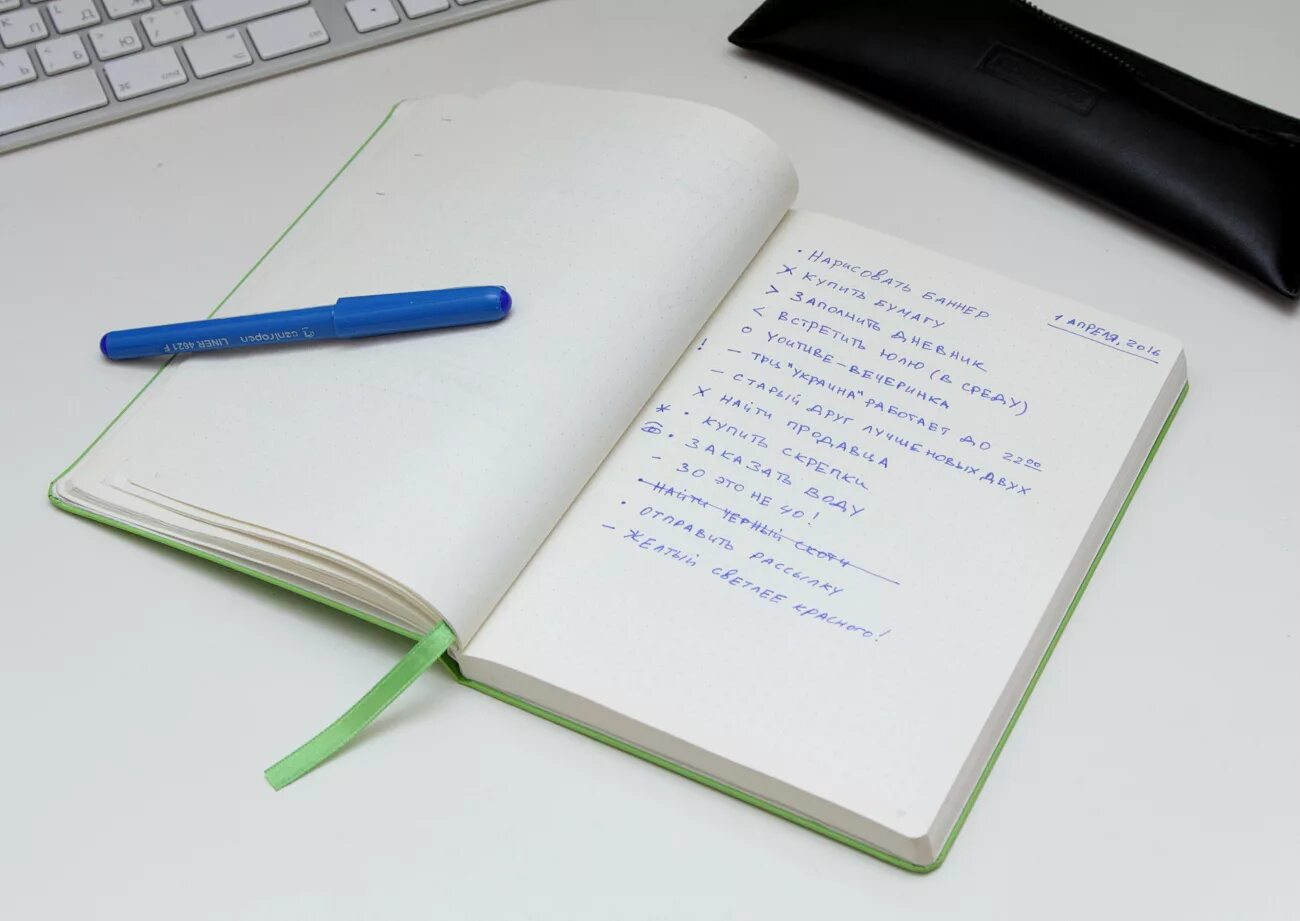 1 АПРЕЛЯ, 2016
• НАРИСОВАТЬ БАННЕР
× КУПИТЬ БУМАГУ
> ЗАПОЛНИТЬ ДНЕВНИК
< ВСТРЕТИТЬ ЮЛЮ (В СРЕДУ)
○ YOUTUBE-ВЕЧЕРИНКА
! – ТРЦ "УКРАИНА" РАБОТАЕТ ДО 22 00
– СТАРЫЙ ДРУГ ЛУЧШЕ НОВЫХ ДВУХ
× НАЙТИ ПРОДАВЦА
* • КУПИТЬ СКРЕПКИ
• ЗАКАЗАТЬ ВОДУ
– 30 ЭТО НЕ 40!
• НАЙТИ ЧЕРНЫЙ СКОТЧ
• ОТПРАВИТЬ РАССЫЛКУ
– ЖЕЛТЫЙ СВЕТЛЕЕ КРАСНОГО!
centropen LINER 4621 F